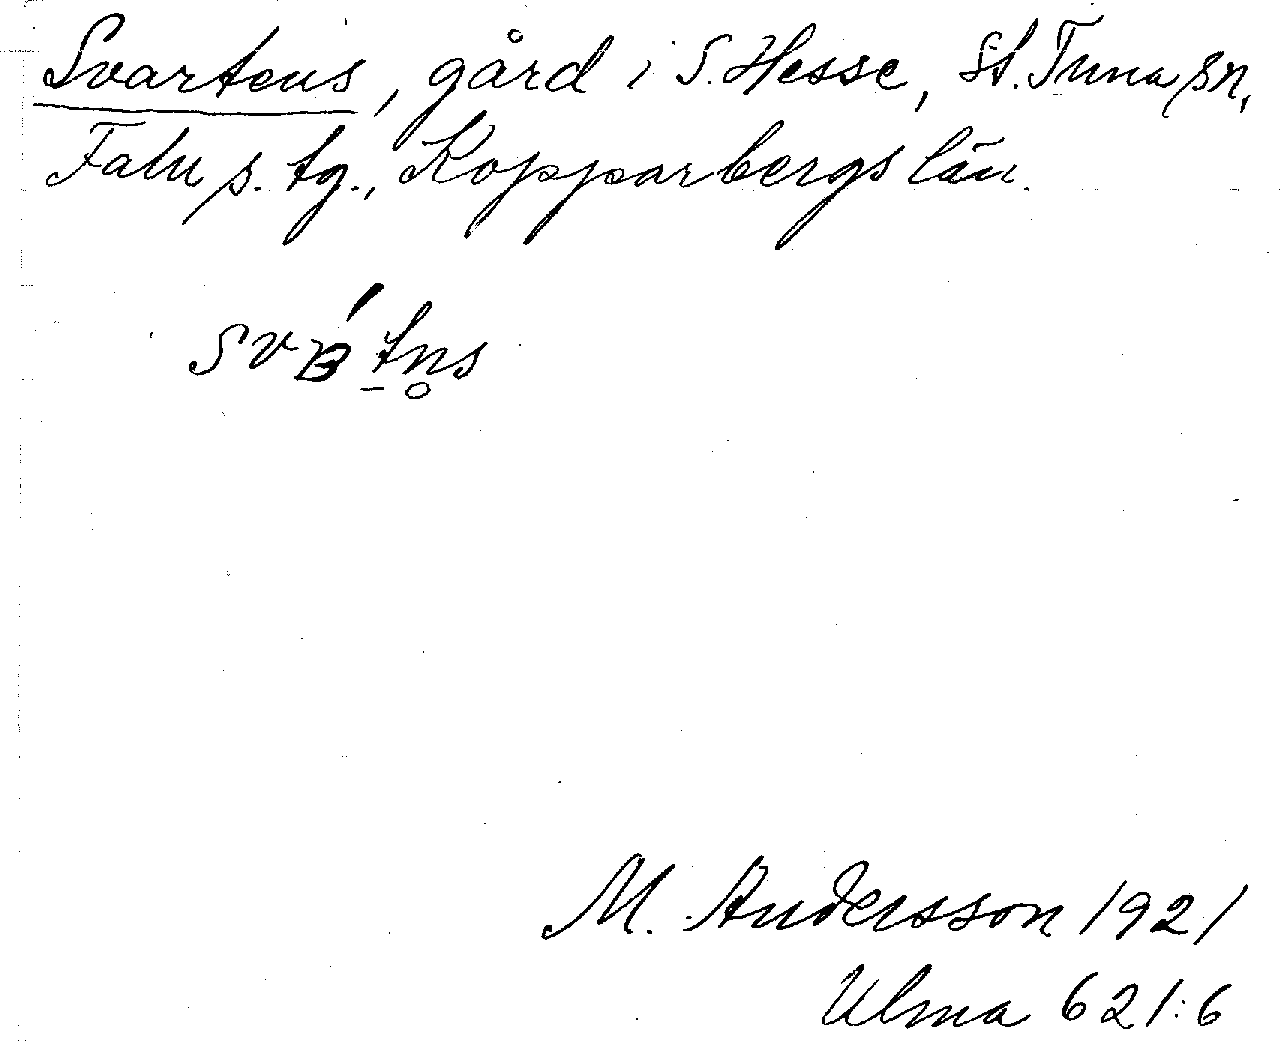 Svartens, gård i S. Hesse, St. Tuna sn,
Falu s. tg., Kopparbergs län.
M. Andersson 1921
Ulma 621:6